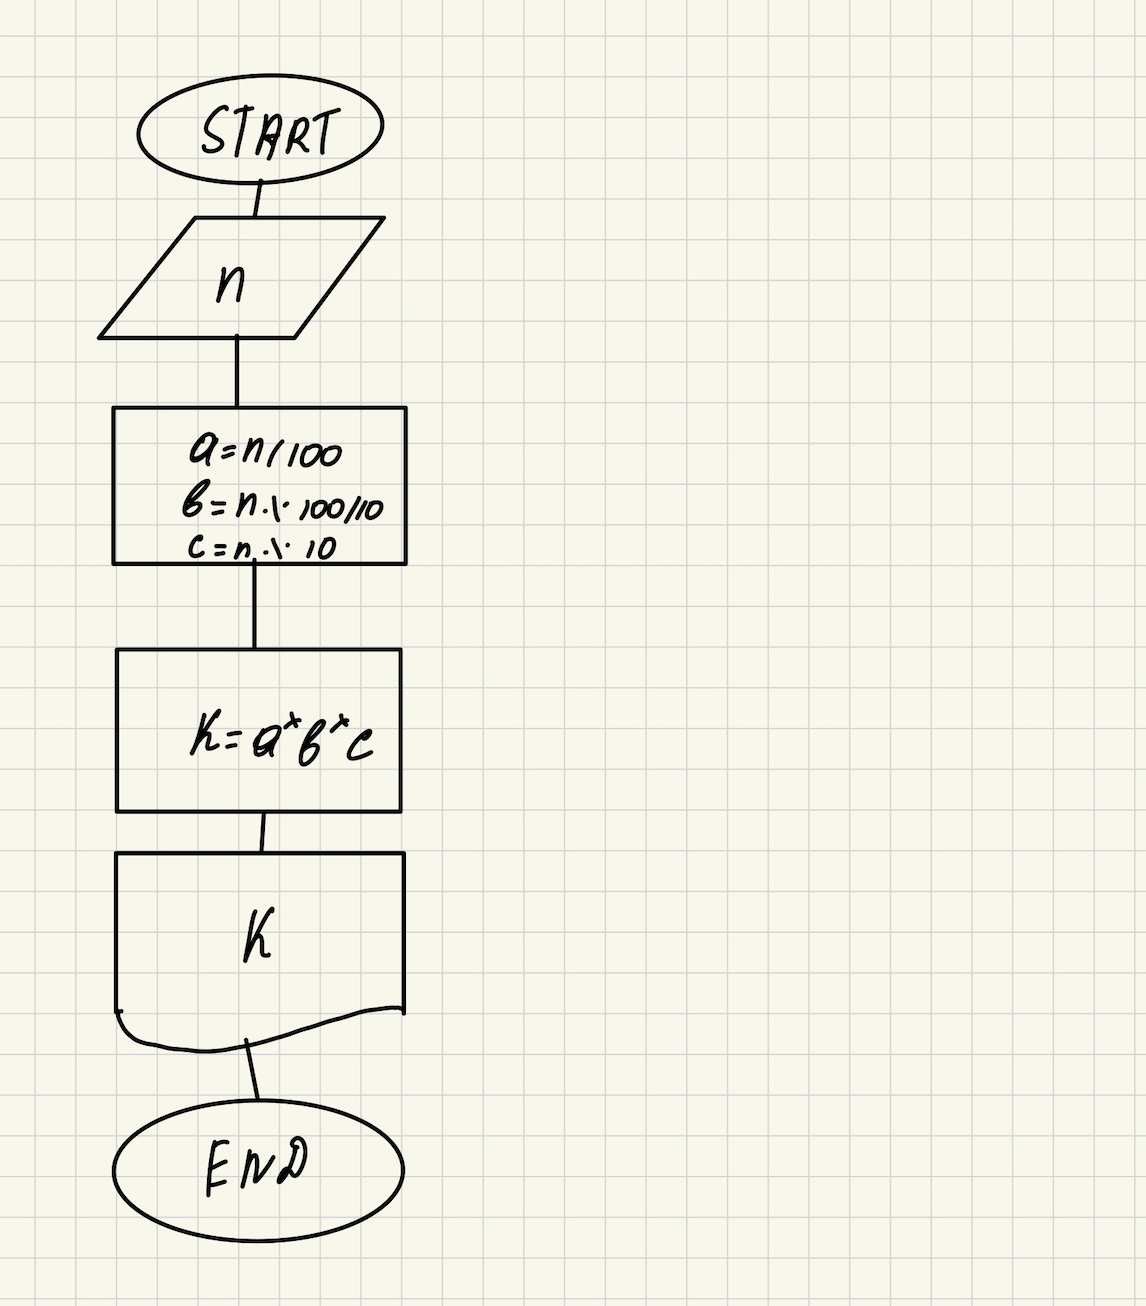 START
n
a=n/100
b=n.\.100/10
c=n.\.10
K=a*b*c
K
END